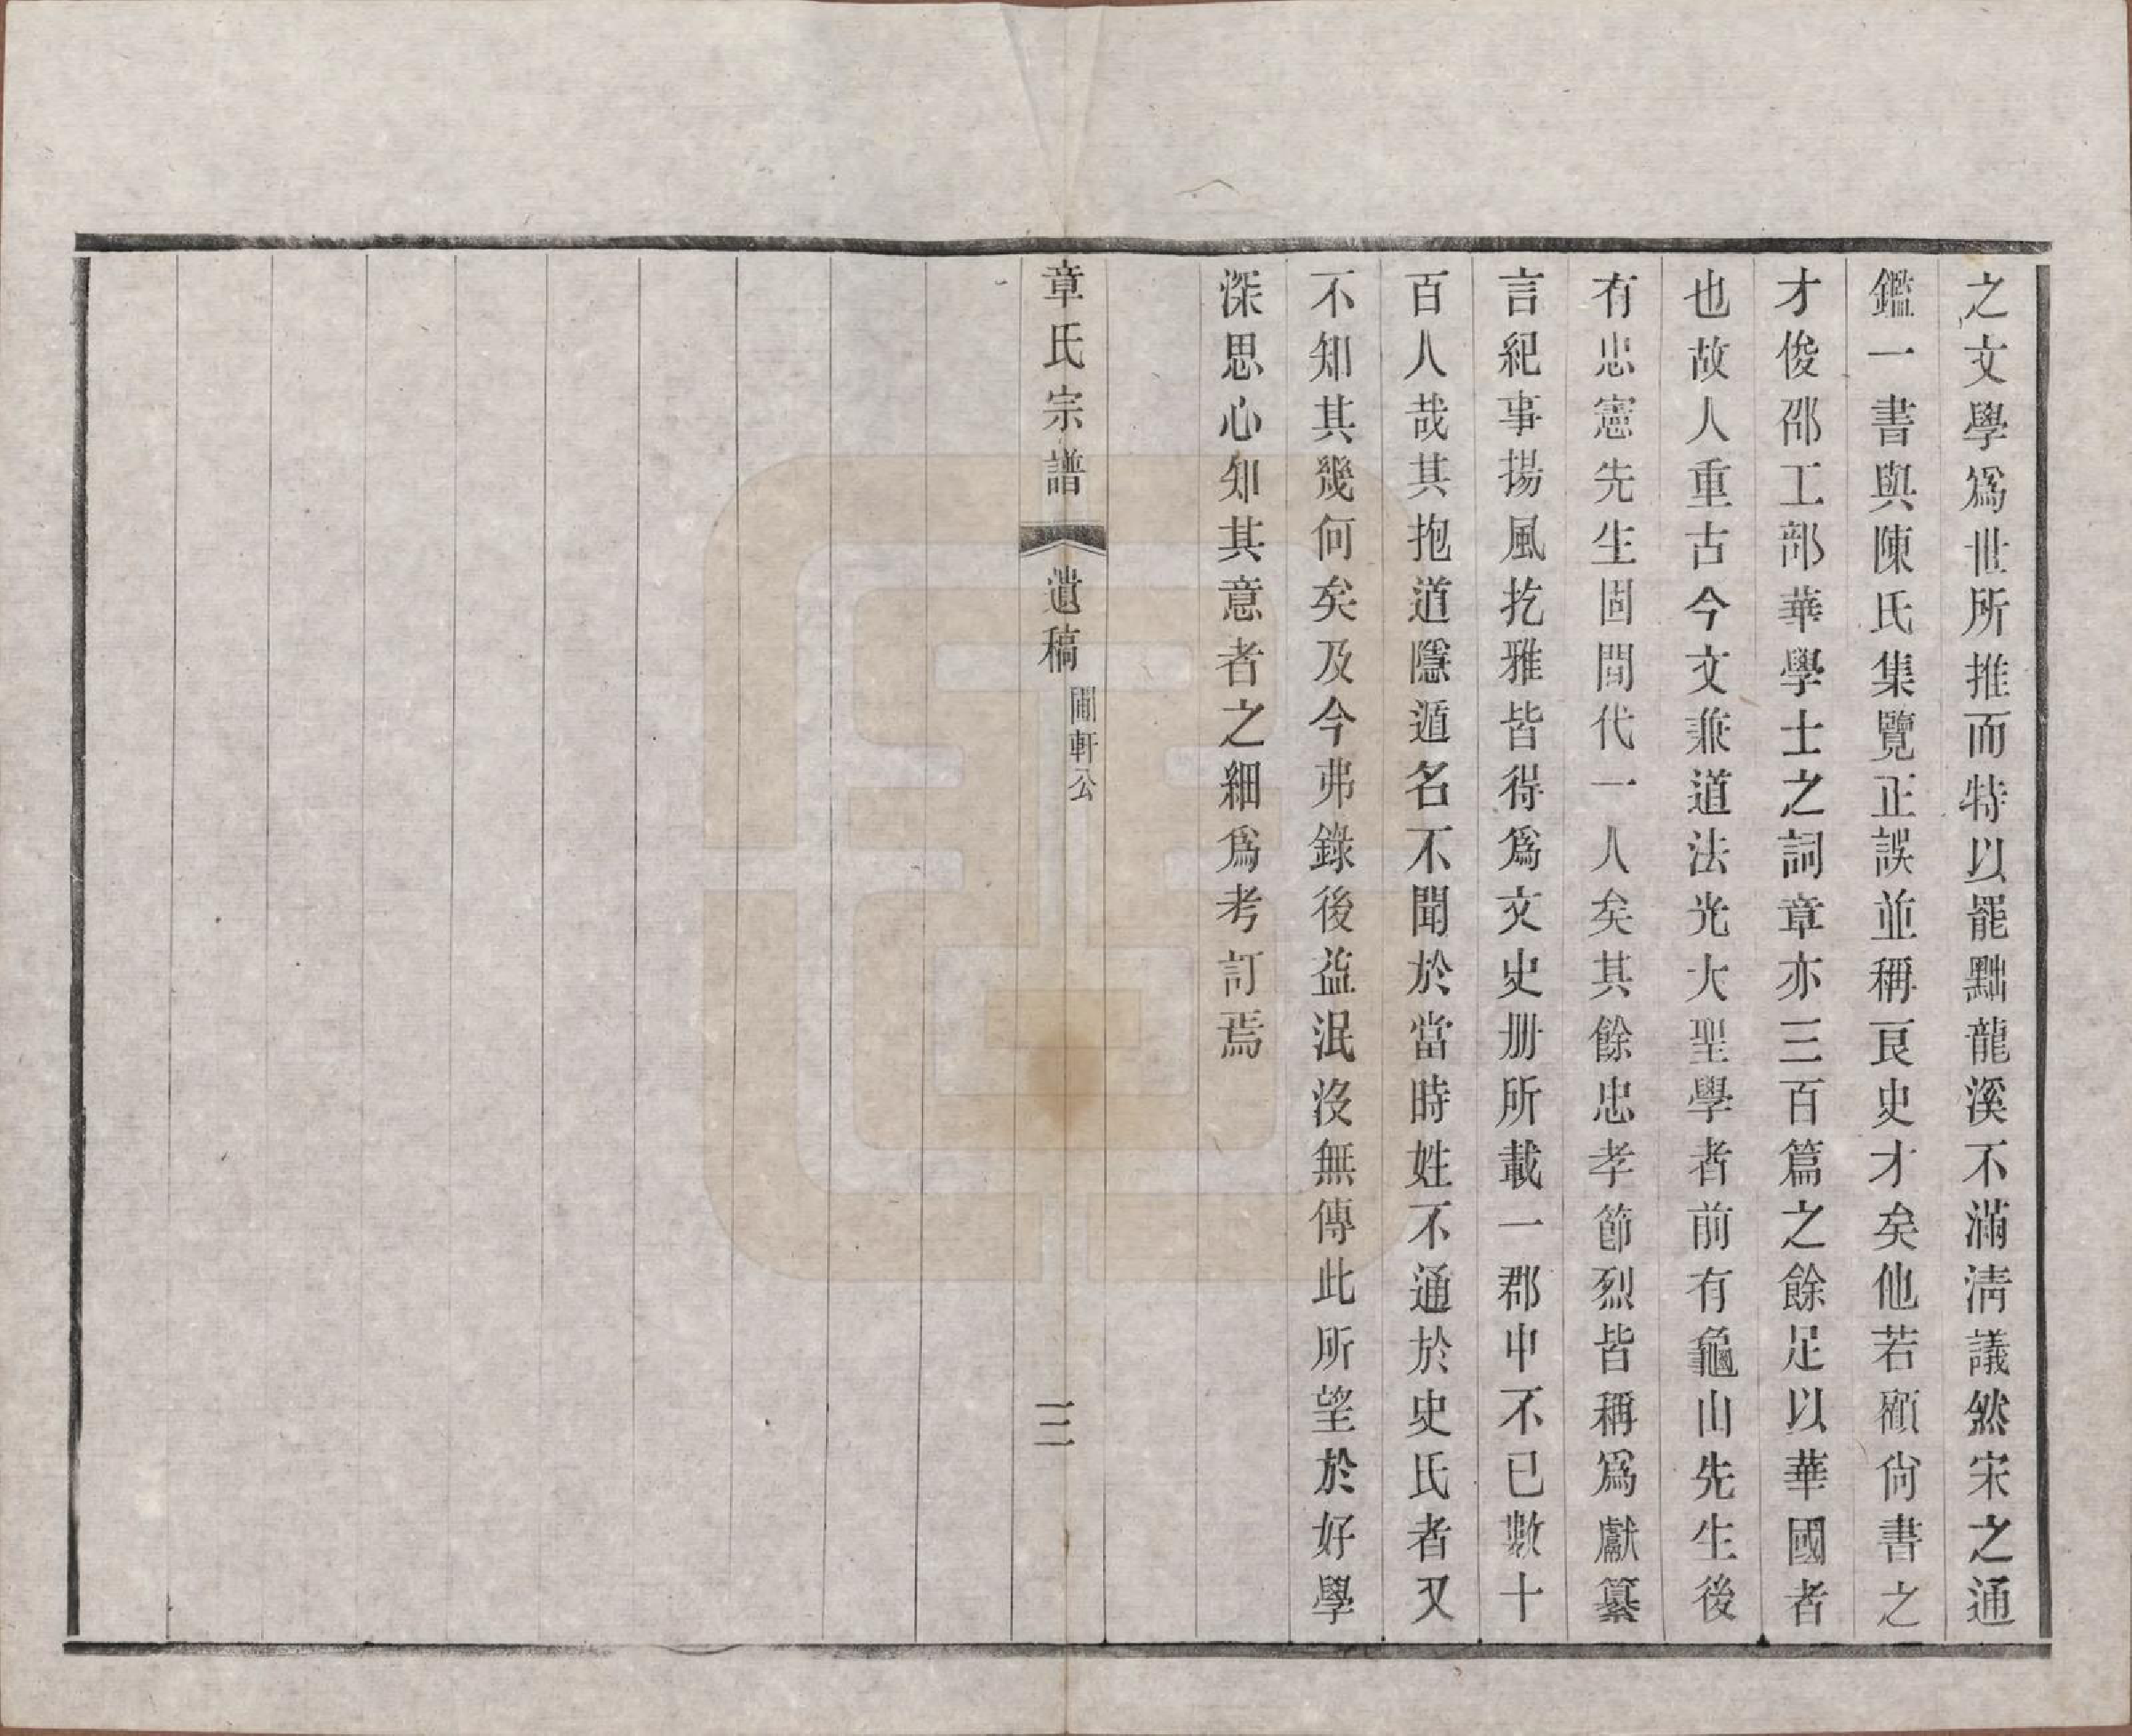 之文學爲世所推而特以罷黜龍溪不滿淸議然宋之通
鑑一書與陳氏集覽正誤並稱良史才矣他若顧尙書之
才俊邵工部華學士之詞章亦三百篇之餘足以華國者
也故人重古今文兼道法光大聖學者前有龜山先生後
有忠憲先生固間代一人矣其餘忠孝節烈皆稱爲獻纂
言紀事揚風扢雅皆得爲文史册所載一郡中不已數十
百人哉其抱道隱遁名不聞於當時姓不通於史氏者又
不知其幾何矣及今弗錄後益泯沒無傳此所望於好學
深思心知其意者之細爲考訂焉
章氏宗譜
遺稿
圃軒公
三